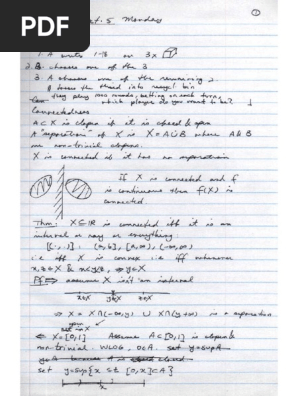 PDF
①
Oct. 5 Monday
1. A writes 1-18 on 3x
2. B chooses one of the 3
3. A chooses one of the remaining 2
tosses the third into recycl' bin
they play rounds, betting on each turn,
which player do you want to be?
Connectedness
A⊂X is clopen if it is closed & open
A "separation" of X is X=A∪B where A&B
are non-trivial clopen
X is connected if it has no separation
If X is connected and f
is continuous then f(X) is
connected
Thm: X⊆ℝ is connected iff it is an
interval or ray or everything.
[(·,·)] : (a,b], [a,∞), (-∞,∞)
i.e. iff X is convex i.e. iff whenever
x,z∈X & x<y<z, ⇒ y∈X
Pf ⇒ assume X isn't an interval
x∈X y∉X z∈X
⇒ X = X∩(-∞,y) ∪ X∩(y,+∞) is a separation
⇐ X=[0,1] Assume A⊂[0,1] is clopen &
non-trivial. WLOG, 0∈A. set y=supA
y∈A because A is closed
set y=sup{x st [0,x]⊂A}
x